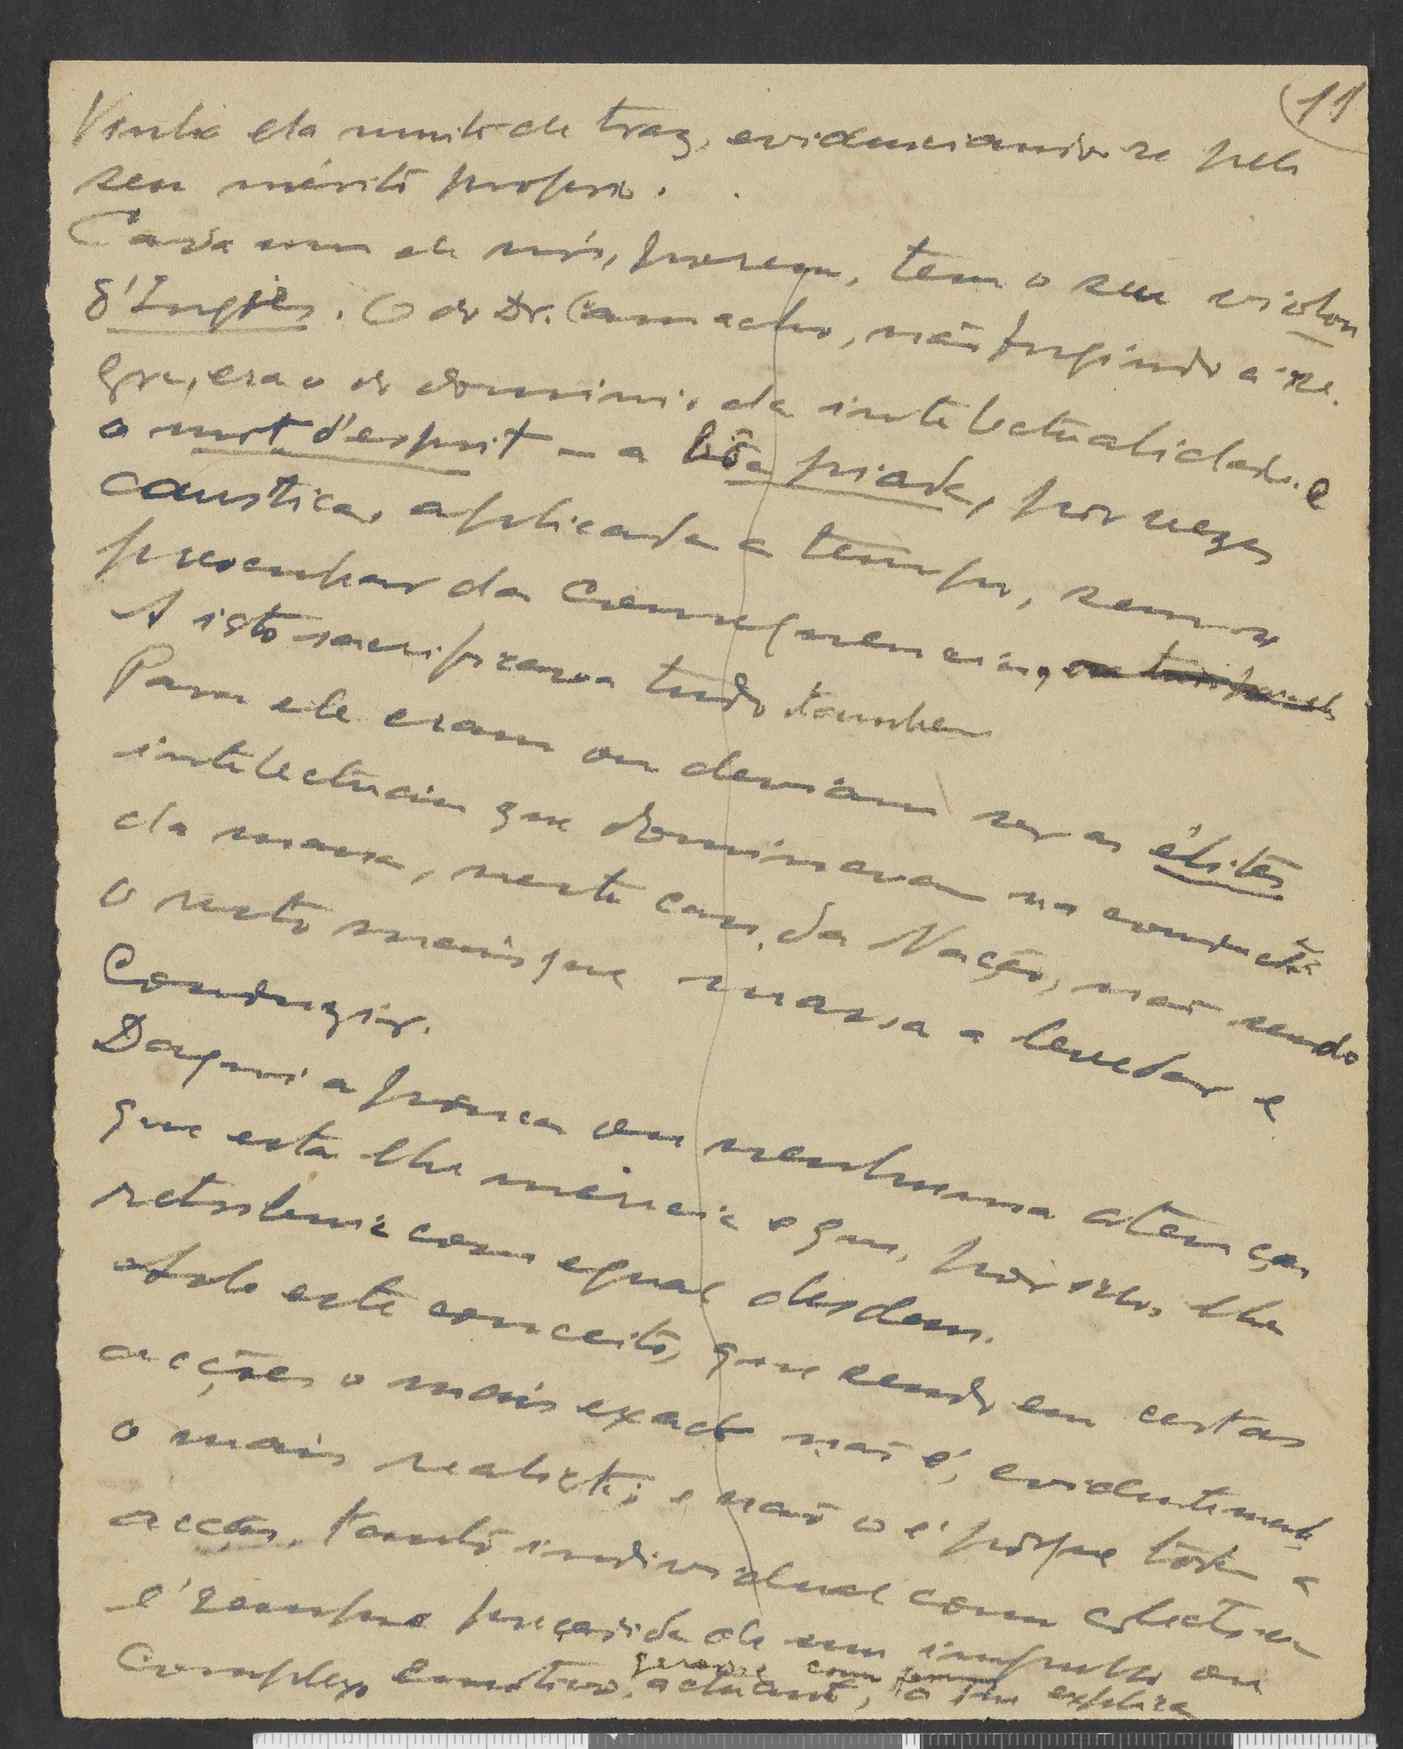 11
Vinha ela muito de traz, evidenciando-se pelo
seu mérito proprio.
Cada um de nós, porem, tem o seu violon
d'Ingrès. O do Dr. Camacho, não fugindo à re.
gra, era o do dominio da intelectualidade e
o mot d'esprit - a bôa piada, por vezes
caustica, aplicada a tempo, sem se
preocupar da consequencia,
A isto sacrificava tudo tambem
Para ele eram ou deviam ser as élites
intelectuais que dominavam na conducta
da massa, neste caso, da Nação, não sendo
o resto mais que massa a levedar e
conduzir.
Daqui a pouca ou nenhuma atenção
que esta lhe merecia e que, por isso, lhe
retribuia com egual desdem.
este conceito, que sendo em certas
acções o mais exacto não é, evidentemente
o mais realista; e não o é porque toda a
acção, tanto individual como colectiva
é sempre precedida de um impulso ou
complexo emotivo, actuante, explica